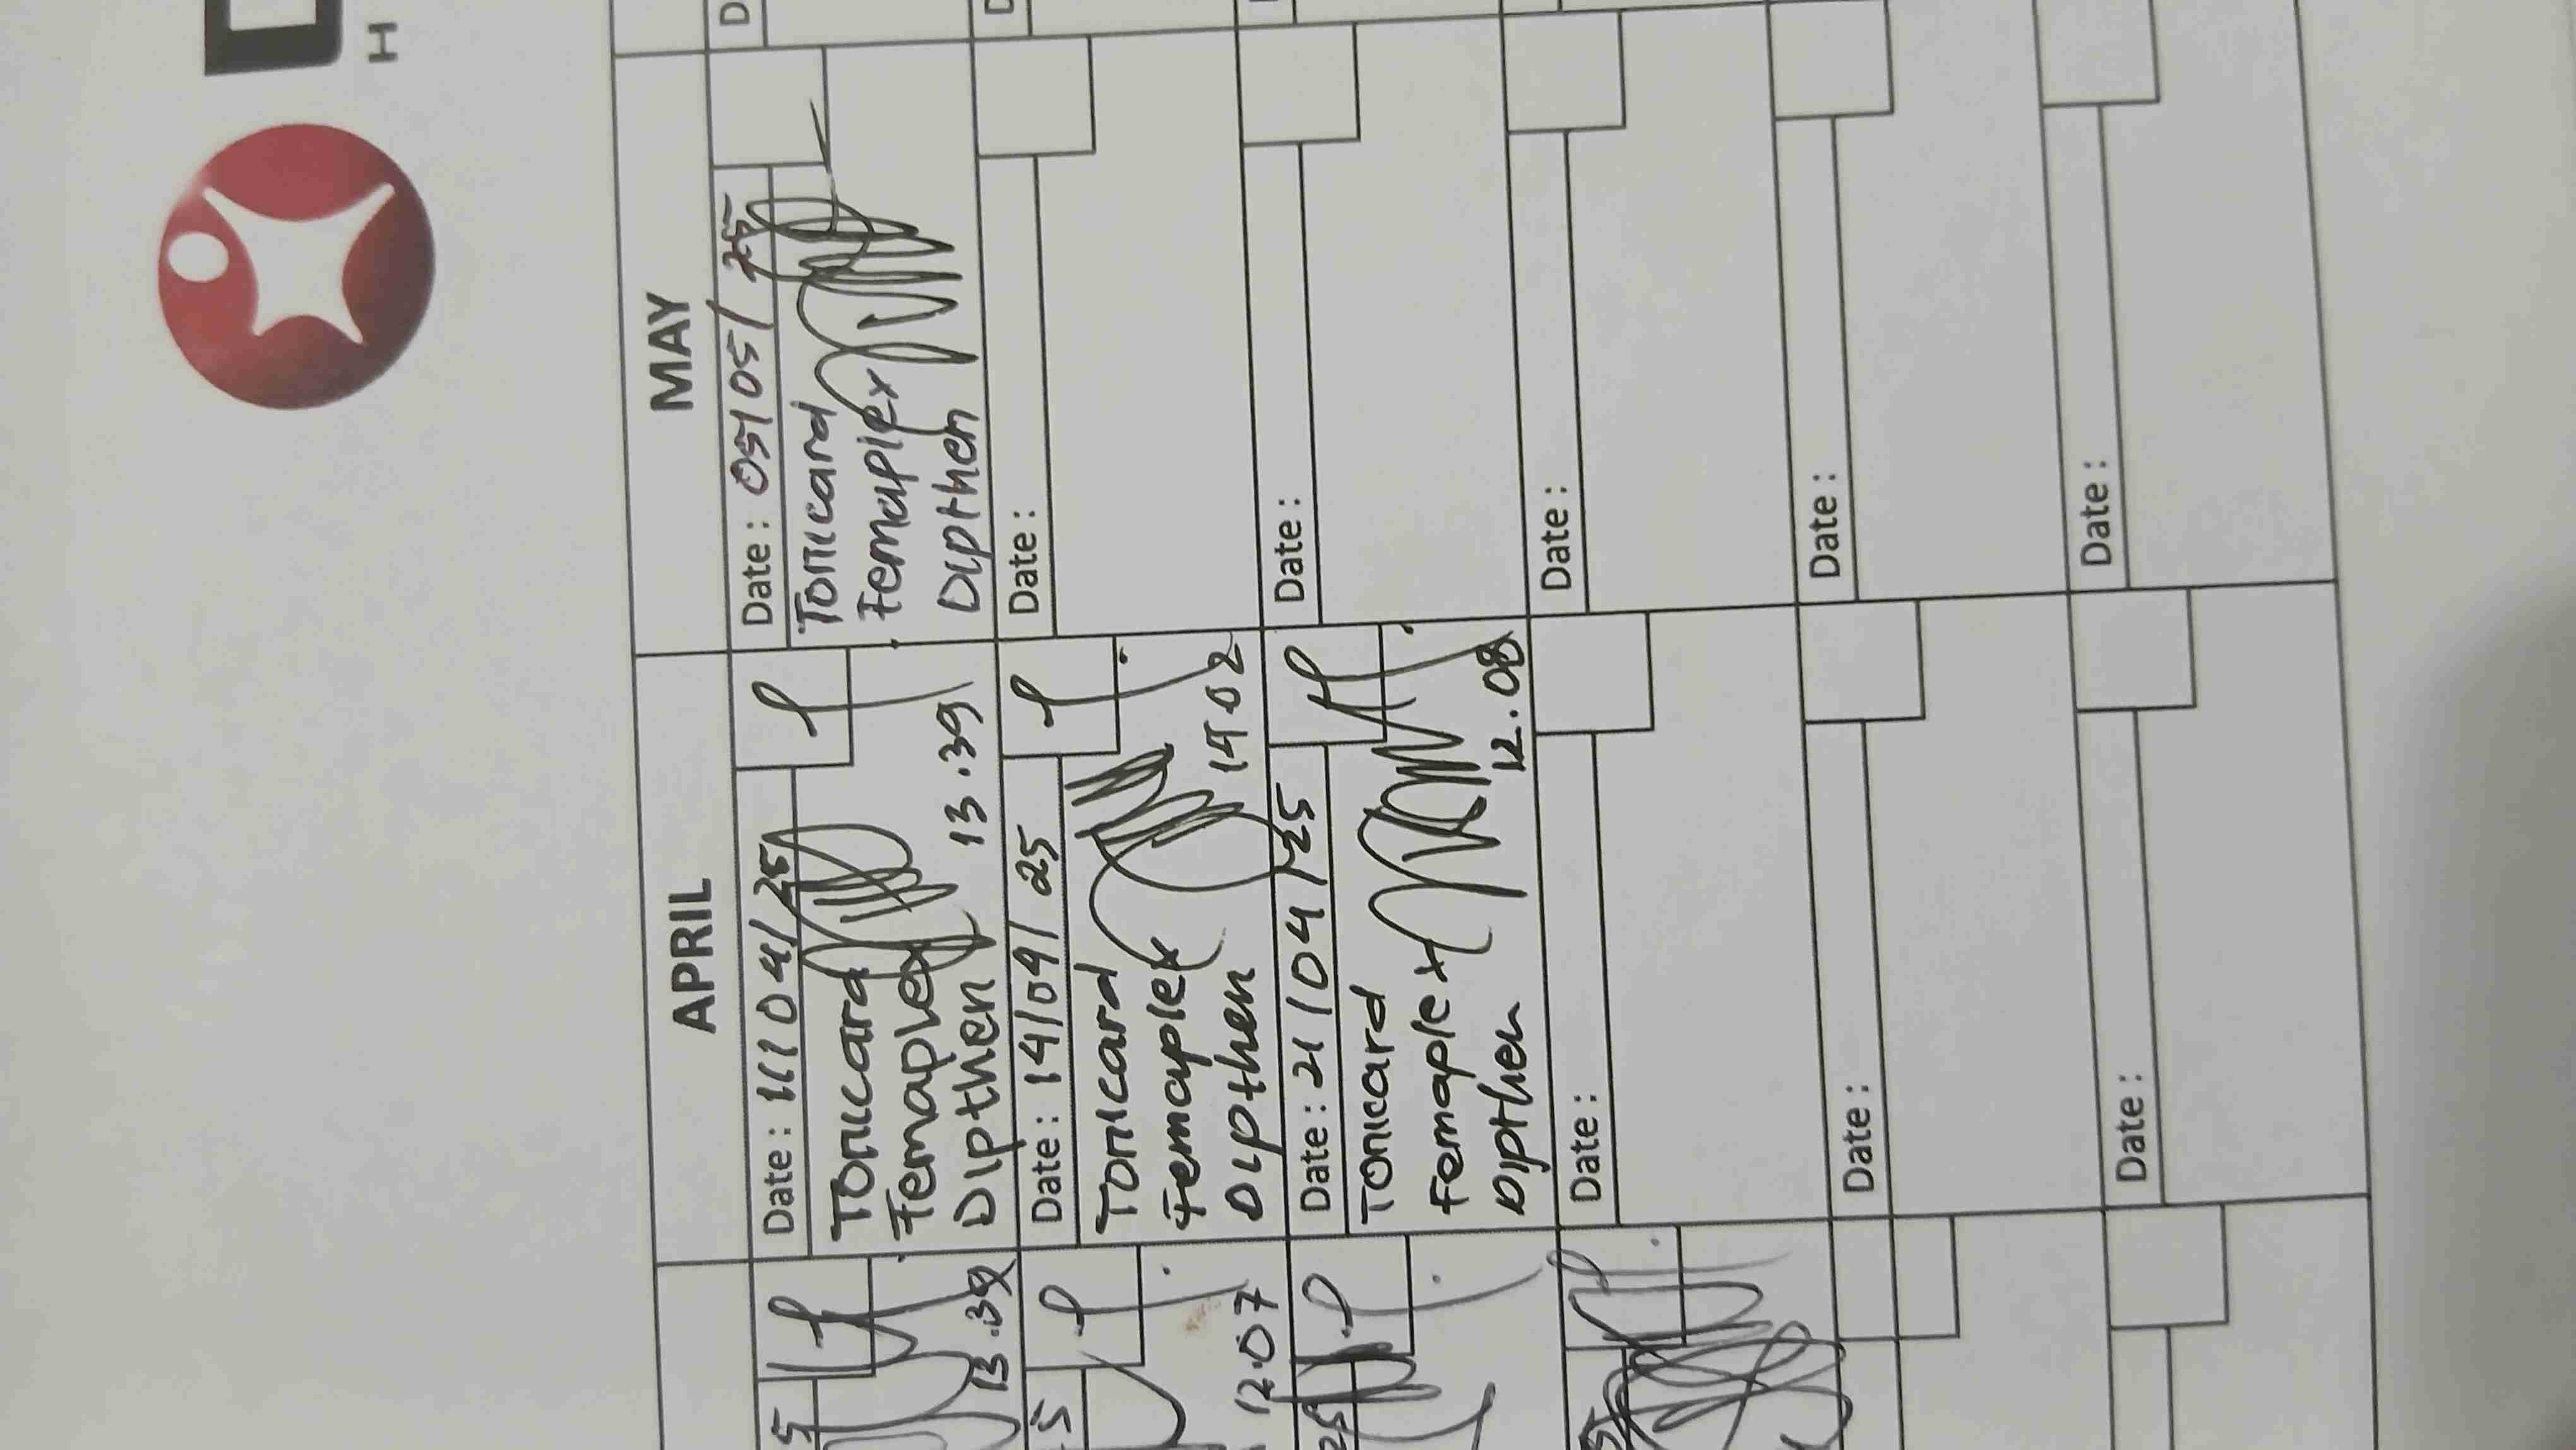 H
APRIL
MAY
13.39
12.07
Date : 11/04/25
Tonicard
Femaplex
Dipthen
13.39
Date : 14/04/25
Tonicard
Femaplex
Dipthen
14.02
Date : 21/04/25
Tonicard
Femaplex
Dipthen
12.08
Date :
Date :
Date :
Date : 05/05/25
Tonicard
Femaplex
Dipthen
Date :
Date :
Date :
Date :
Date :